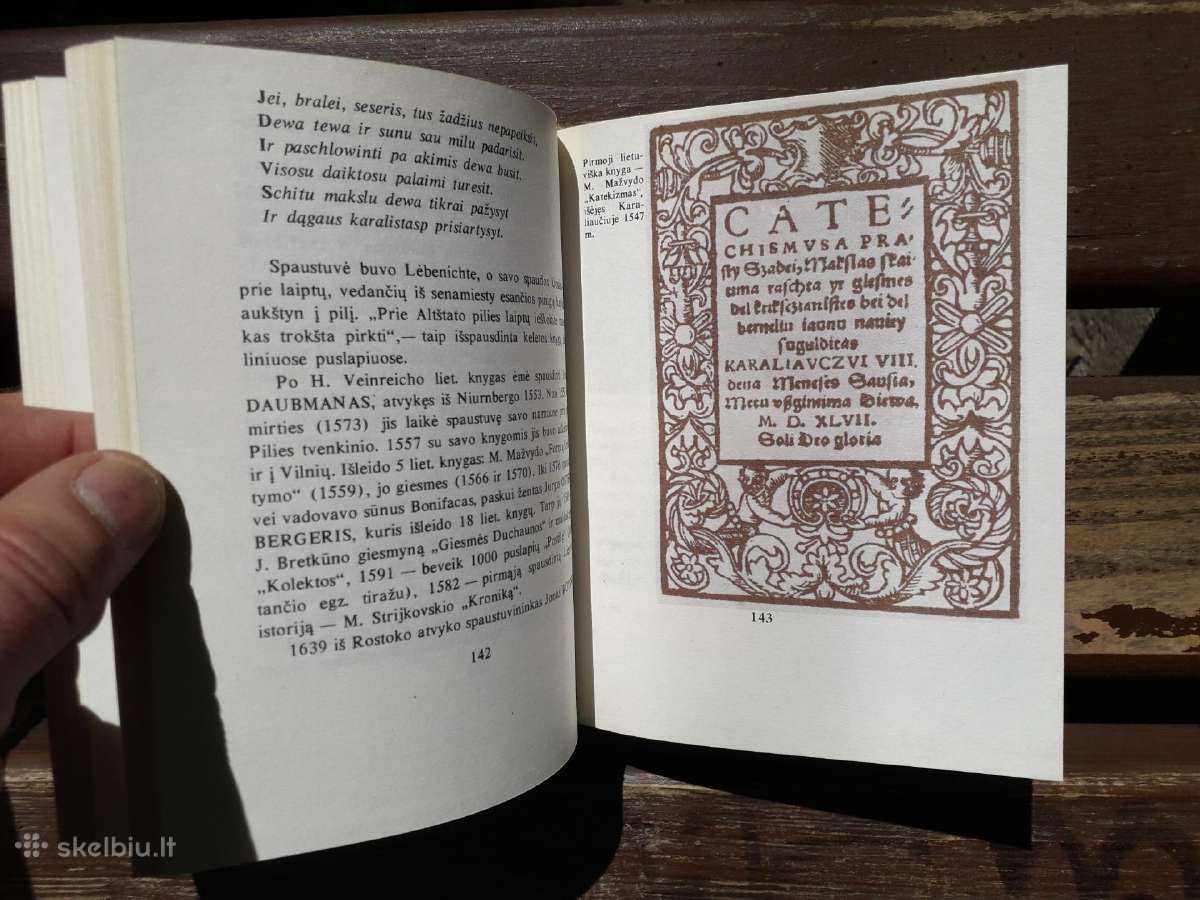 Jei, bralei, seseris, tus žadžius nepapeiksit,
Dewa tewa ir sunu sau milu padarisit.
Ir paschlowinti pa akimis dewa busit.
Visosu daiktosu palaimi turesit.
Schitu makslu dewa tikrai pažysyt
Ir dągaus karalistasp prisiartysyt.
Spaustuvė buvo Lėbenichte, o savo
prie laiptų, vedančių iš senamiesty esančios
aukštyn į pilį. „Prie Altštato pilies laiptų
kas trokšta pirkti“,— taip išspausdinta
liniuose puslapiuose.
Po H. Veinreicho liet. knygas ėmė
DAUBMANAS, atvykęs iš Niurnbergo 1553.
mirties (1573) jis laikė spaustuvę savo
Pilies tvenkinio. 1557 su savo knygomis jis buvo
ir į Vilnių. Išleido 5 liet. knygas: M. Mažvydo
tymo“ (1559), jo giesmes (1566 ir 1570). Iki
vei vadovavo sūnus Bonifacas, paskui žentas
BERGERIS, kuris išleido 18 liet. knygų. Tarp jų
J. Bretkūno giesmyną „Giesmės Duchaunos“ ir
„Kolektos“, 1591 — beveik 1000 puslapių
tančio egz. tiražu), 1582 — pirmąją spausdintą
istoriją — M. Strijkovskio „Kroniką“.
1639 iš Rostoko atvyko spaustuvininkas Jonas
142
Pirmoji lietu-
viška knyga —
M. Mažvydo
„Katekizmas“,
išėjęs Kara-
liaučiuje 1547
m.
CATE
CHISMVSA PRA
sty Szadei, Makslas skai-
tima raschta yr giesmes
del kriksczianistes bei del
berneliu iaunu nauiey
sugulditas
KARALIAVCZVI VIII.
dena Meneses Sausia,
Metu vßgimima Diewa.
M. D. XLVII.
Soli Deo gloria
143
skelbiu.lt